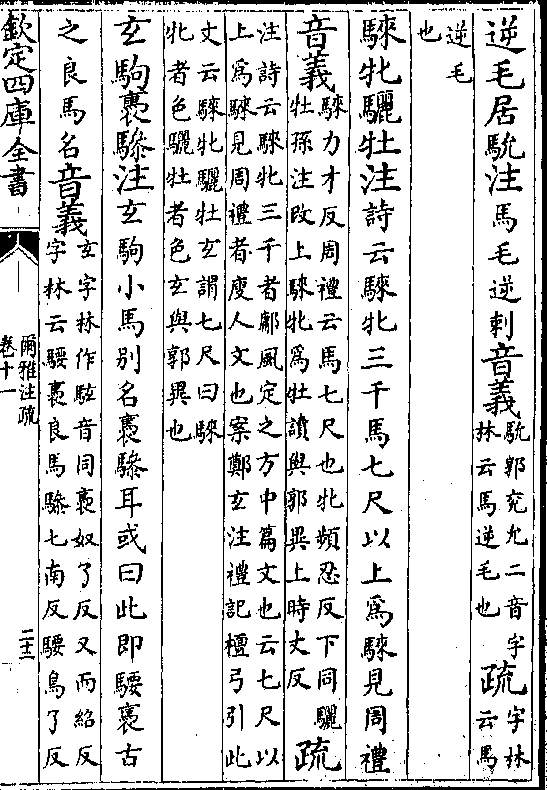 逆毛居馻注馬毛逆刺音義馻郭兖允二音字
林云馬逆毛也疏字林
云馬
逆毛
也
騋牝驪牡注詩云騋牝三千馬七尺以上爲騋見周禮
音義騋力才反周禮云馬七尺也牝頻忍反下同驪
牡孫注改上騋牝爲牡讀與郭異上時丈反疏
注詩云騋牝三千者鄘風定之方中篇文也云七尺以
上爲騋見周禮者廋人文也案鄭玄注禮記檀弓引此
文云騋牝驪牡玄謂七尺曰騋
牝者色驪牡者色玄與郭異也
玄駒褭驂注玄駒小馬別名褭驂耳或曰此即騕褭古
之良馬名音義玄字林作駭音同褭奴了反又而紹反
字林云騕褭良馬驂七南反騕烏了反
欽定四庫全書
爾雅注疏
卷十一
二十三